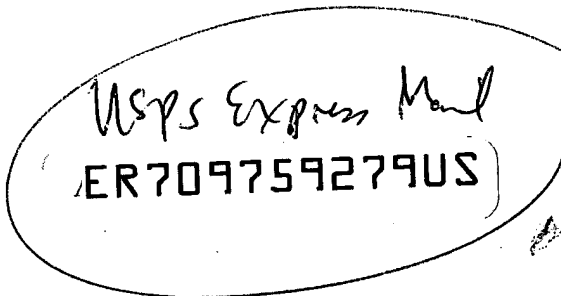 USPS Express Mail
ER709759279US